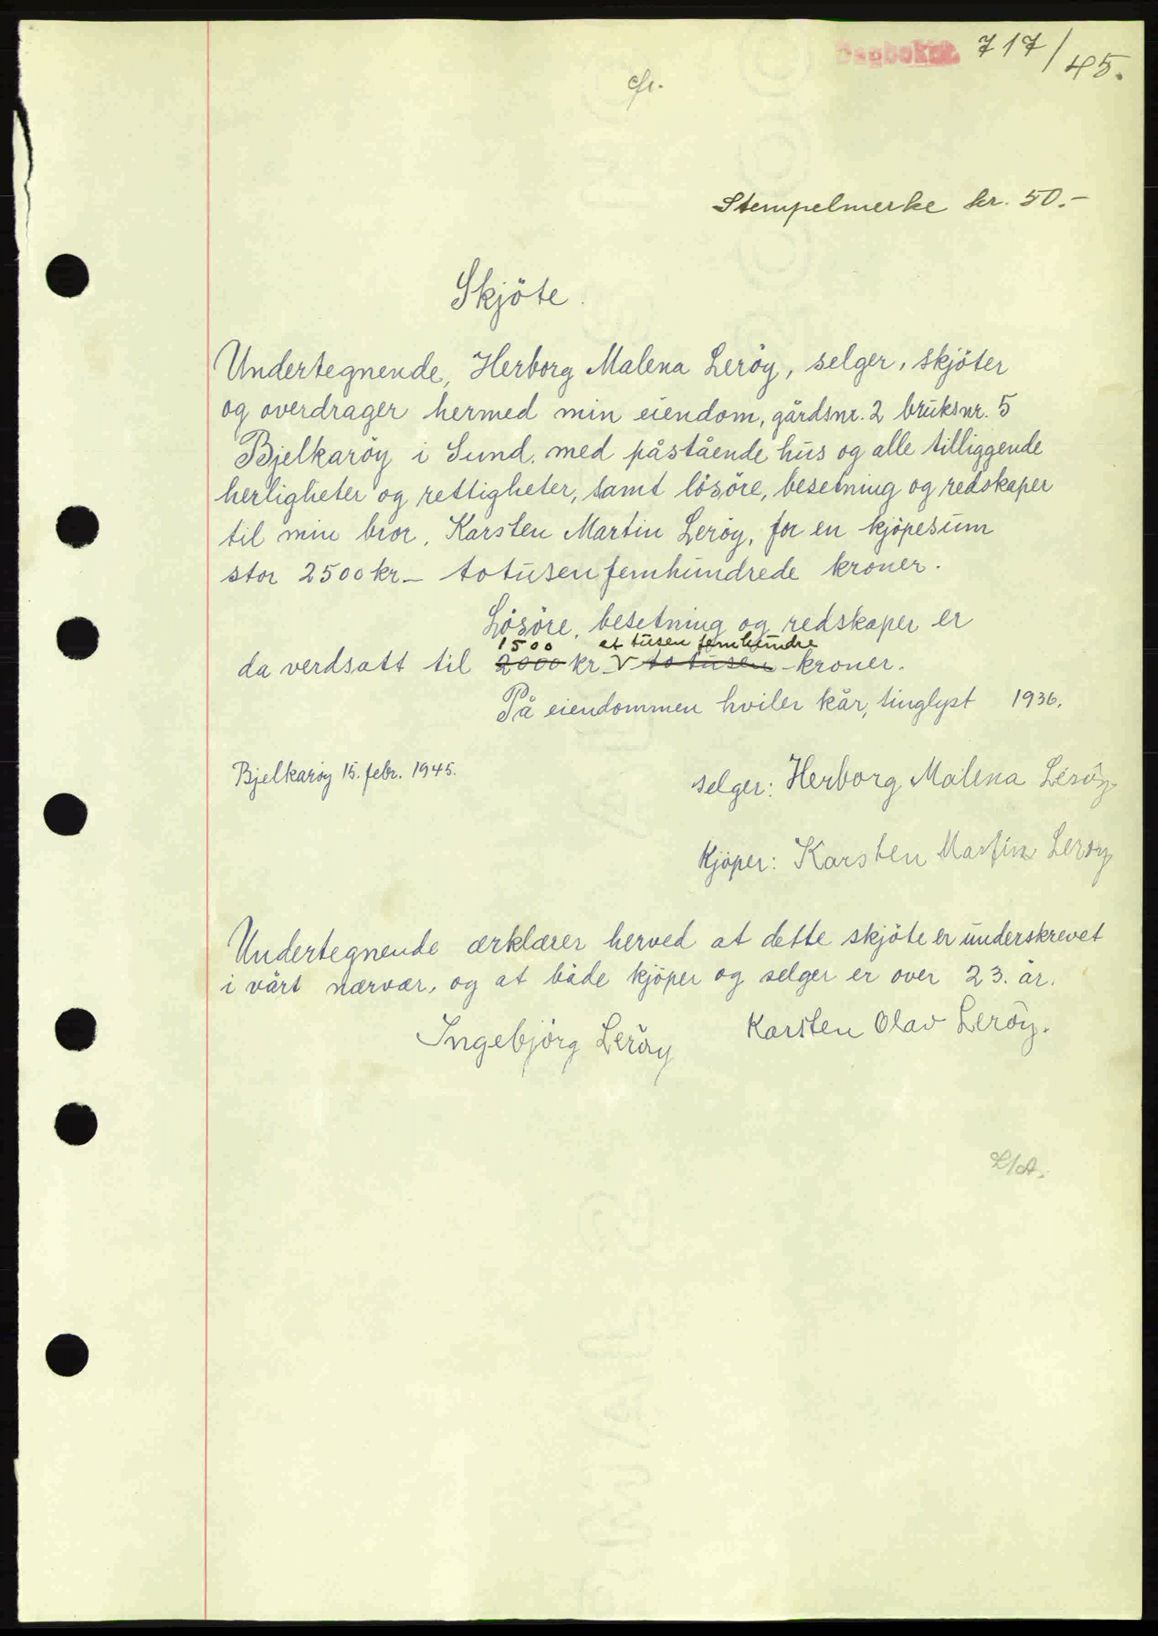 Dagboknr. 717/45.
cfr.
Stempelmerke kr. 50.-
Skjöte.
Undertegnende, Herborg Malena Leröy, selger, skjöter
og overdrager hermed min eiendom, gårdsnr. 2 bruksnr. 5
Bjelkaröy i Sund. med påstående hus og alle tilliggende
herligheter og rettigheter, samt lösöre, besetning og redskaper
til min bror, Karsten Martin Leröy, for en kjöpesum
stor 2500 kr_ totusenfemhundrede kroner.
Lösöre, besetning og redskaper er
1500 et tusen femhundre
da verdsatt til 2000 kr. V to tusen kroner.
På eiendommen hviler kår, tinglyst 1936.
Bjelkaröy 15. febr. 1945.
selger: Herborg Malena Leröy
Kjöper: Karsten Martin Leröy
Undertegnende ærklærer herved at dette skjöte er underskrevet
i vårt nærvær, og at både kjöper og selger er over 23. år.
Ingebjörg Leröy Karsten Olav Leröy.